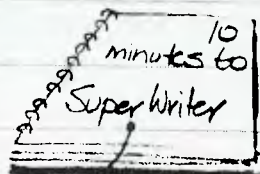 10
minutes to
SuperWriter